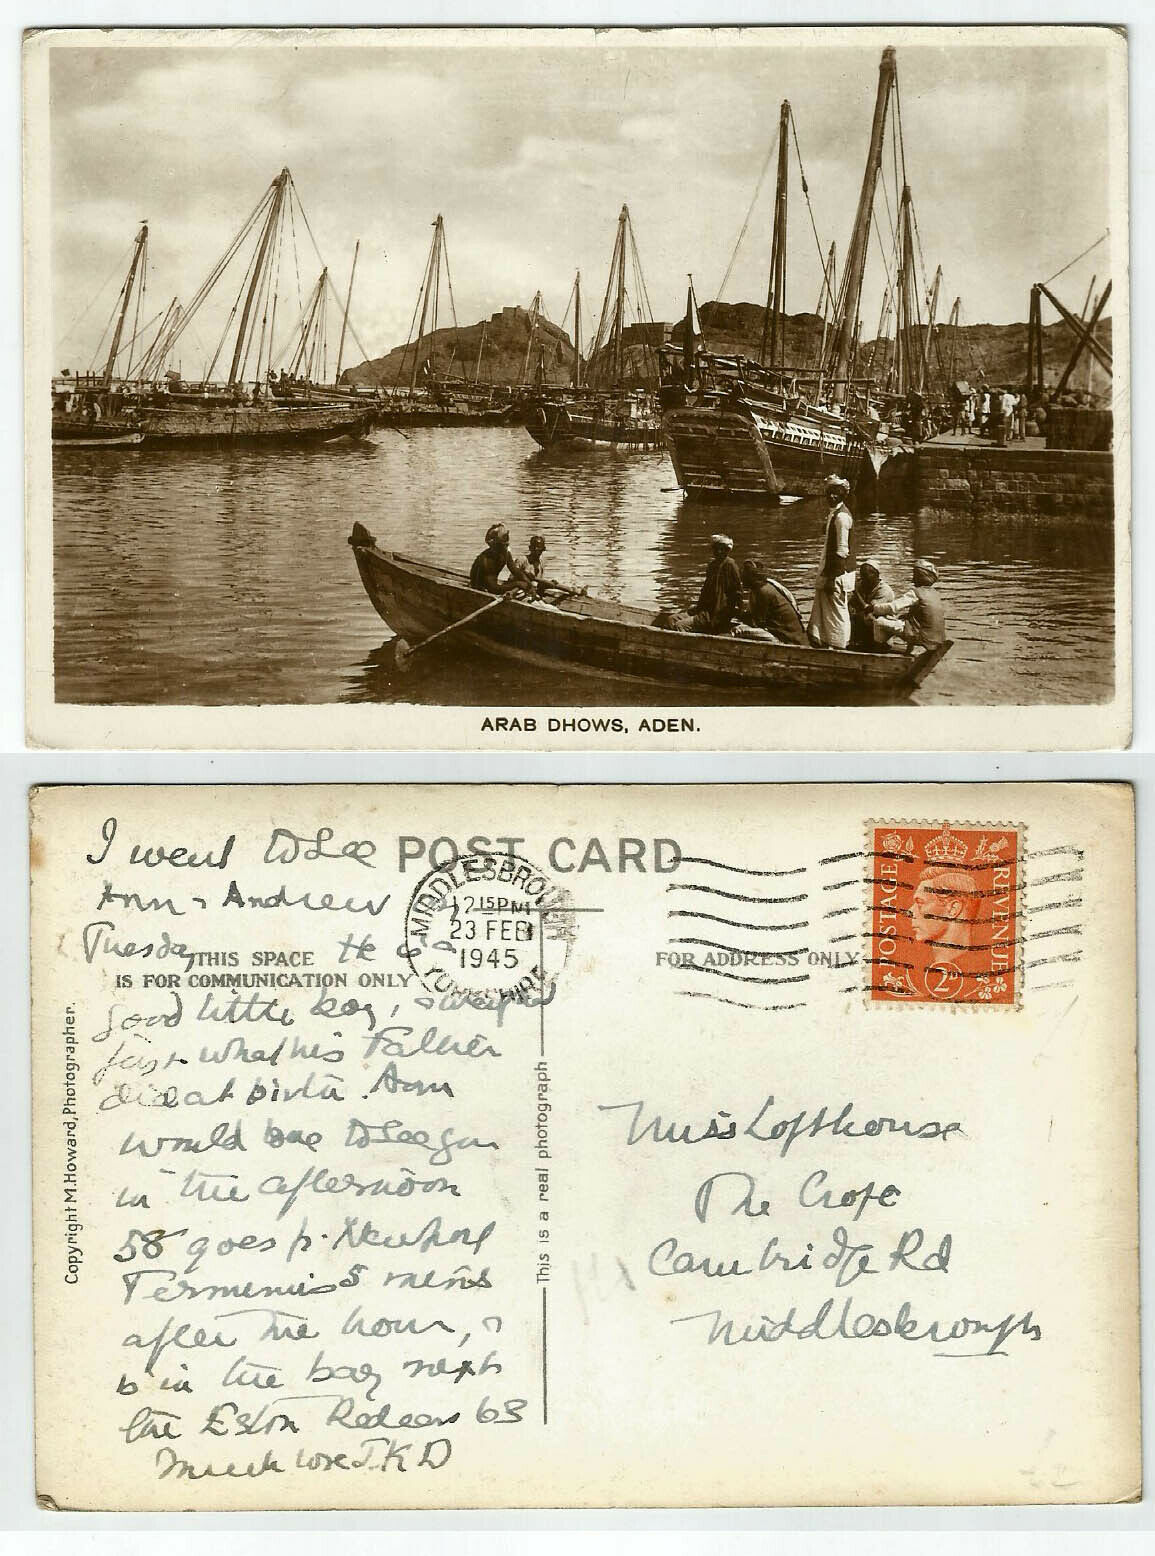 ARAB DHOWS, ADEN.
POST CARD
THIS SPACE
IS FOR COMMUNICATION ONLY
FOR ADDRESS ONLY
MIDDLESBROUGH
12 15 PM
23 FEB
1945
YORKSHIRE
POSTAGE REVENUE
2D
Copyright M. Howard, Photographer.
This is a real photograph
I went to see
Ann & Andrew
Tuesday He is a
good little boy, & weighed
just what his Father
did at birth. Ann
would love to see you
in the afternoon
58 goes fr. Newport
Terminus 5 mins
after the hour, &
is in the bay next
the Eston Redcar 63
Much love J.K.D
Miss Lofthouse
The Croft
Cambridge Rd
Middlesbrough